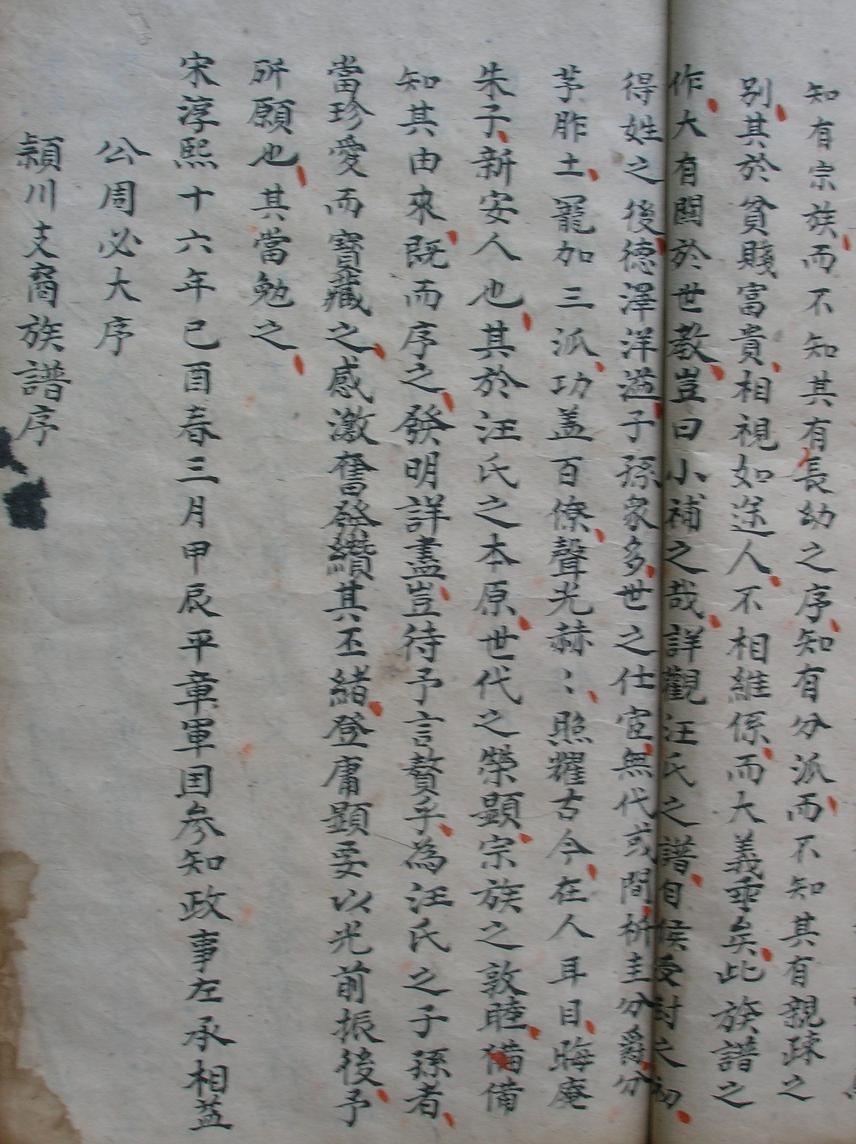 知有宗族而不知其有長幼之序知有分派而不知其有親疎之
別其於貧賤富貴相視如途人不相維係而大義乖矣此族譜之
作大有關於世教豈曰小補之哉詳觀汪氏之譜自侯受封之初
得姓之後德澤洋溢子孫衆多世之仕宦無代或間析圭分爵分
茅胙土罷加三派功盖百僚聲光赫〻照耀古今在人耳目晦庵
朱子新安人也其於汪氏之本原世代之榮顯宗族之敦睦備備
知其由來既而序之發明詳盡豈待予言贅乎為汪氏之子孫者
當珍愛而寶藏之感激奮發纘其丕緒登庸顯要以光前振後予
所願也其當勉之
宋淳熙十六年己酉春三月甲辰平章軍国参知政事左承相益
公周必大序
頴川支裔族譜序